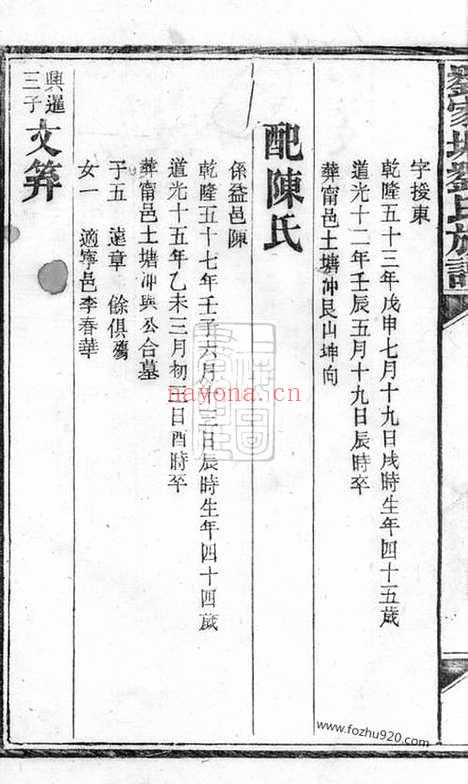 劉氏族譜
字援東
乾隆五十三年戊申七月十九日戌時生年四十五歲
道光十二年壬辰五月十九日辰時卒
葬甯邑土塘冲艮山坤向
配陳氏
係益邑陳
乾隆五十七年壬子六月初三日辰時生年四十四歲
道光十五年乙未三月初三日酉時卒
葬甯邑土塘冲與公合墓
子五 遠章 餘俱殤
女一 適寧邑李春華
興暹三子文筭
nayona.cn
www.fozhu920.com